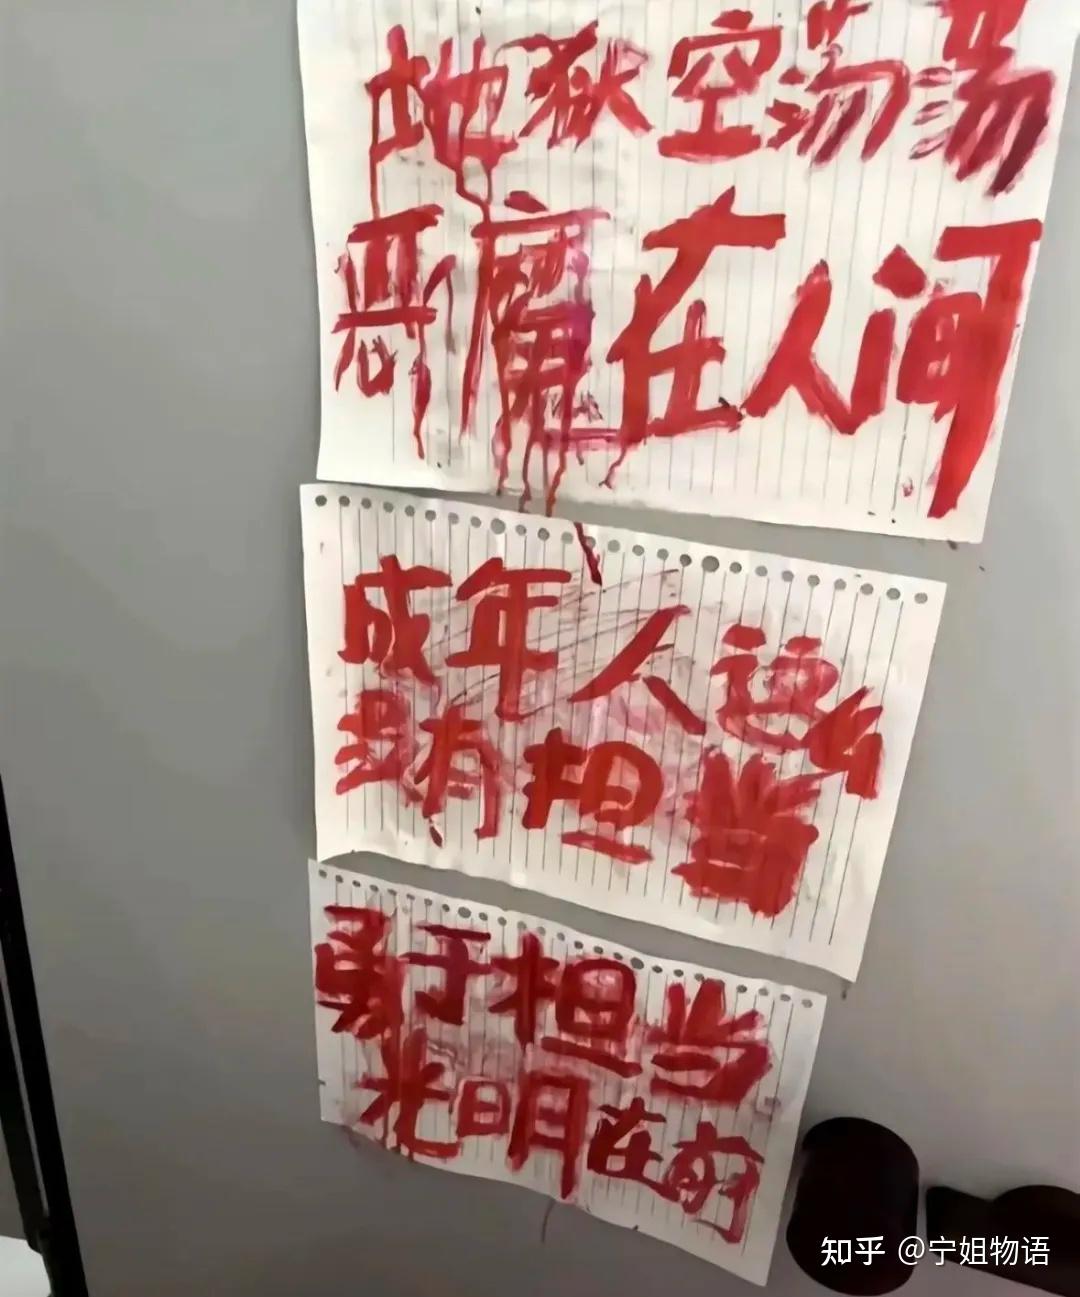 地狱空荡荡
恶魔在人间
成年人这么
没有担当
勇于担当
光明在前
知乎 @宁姐物语